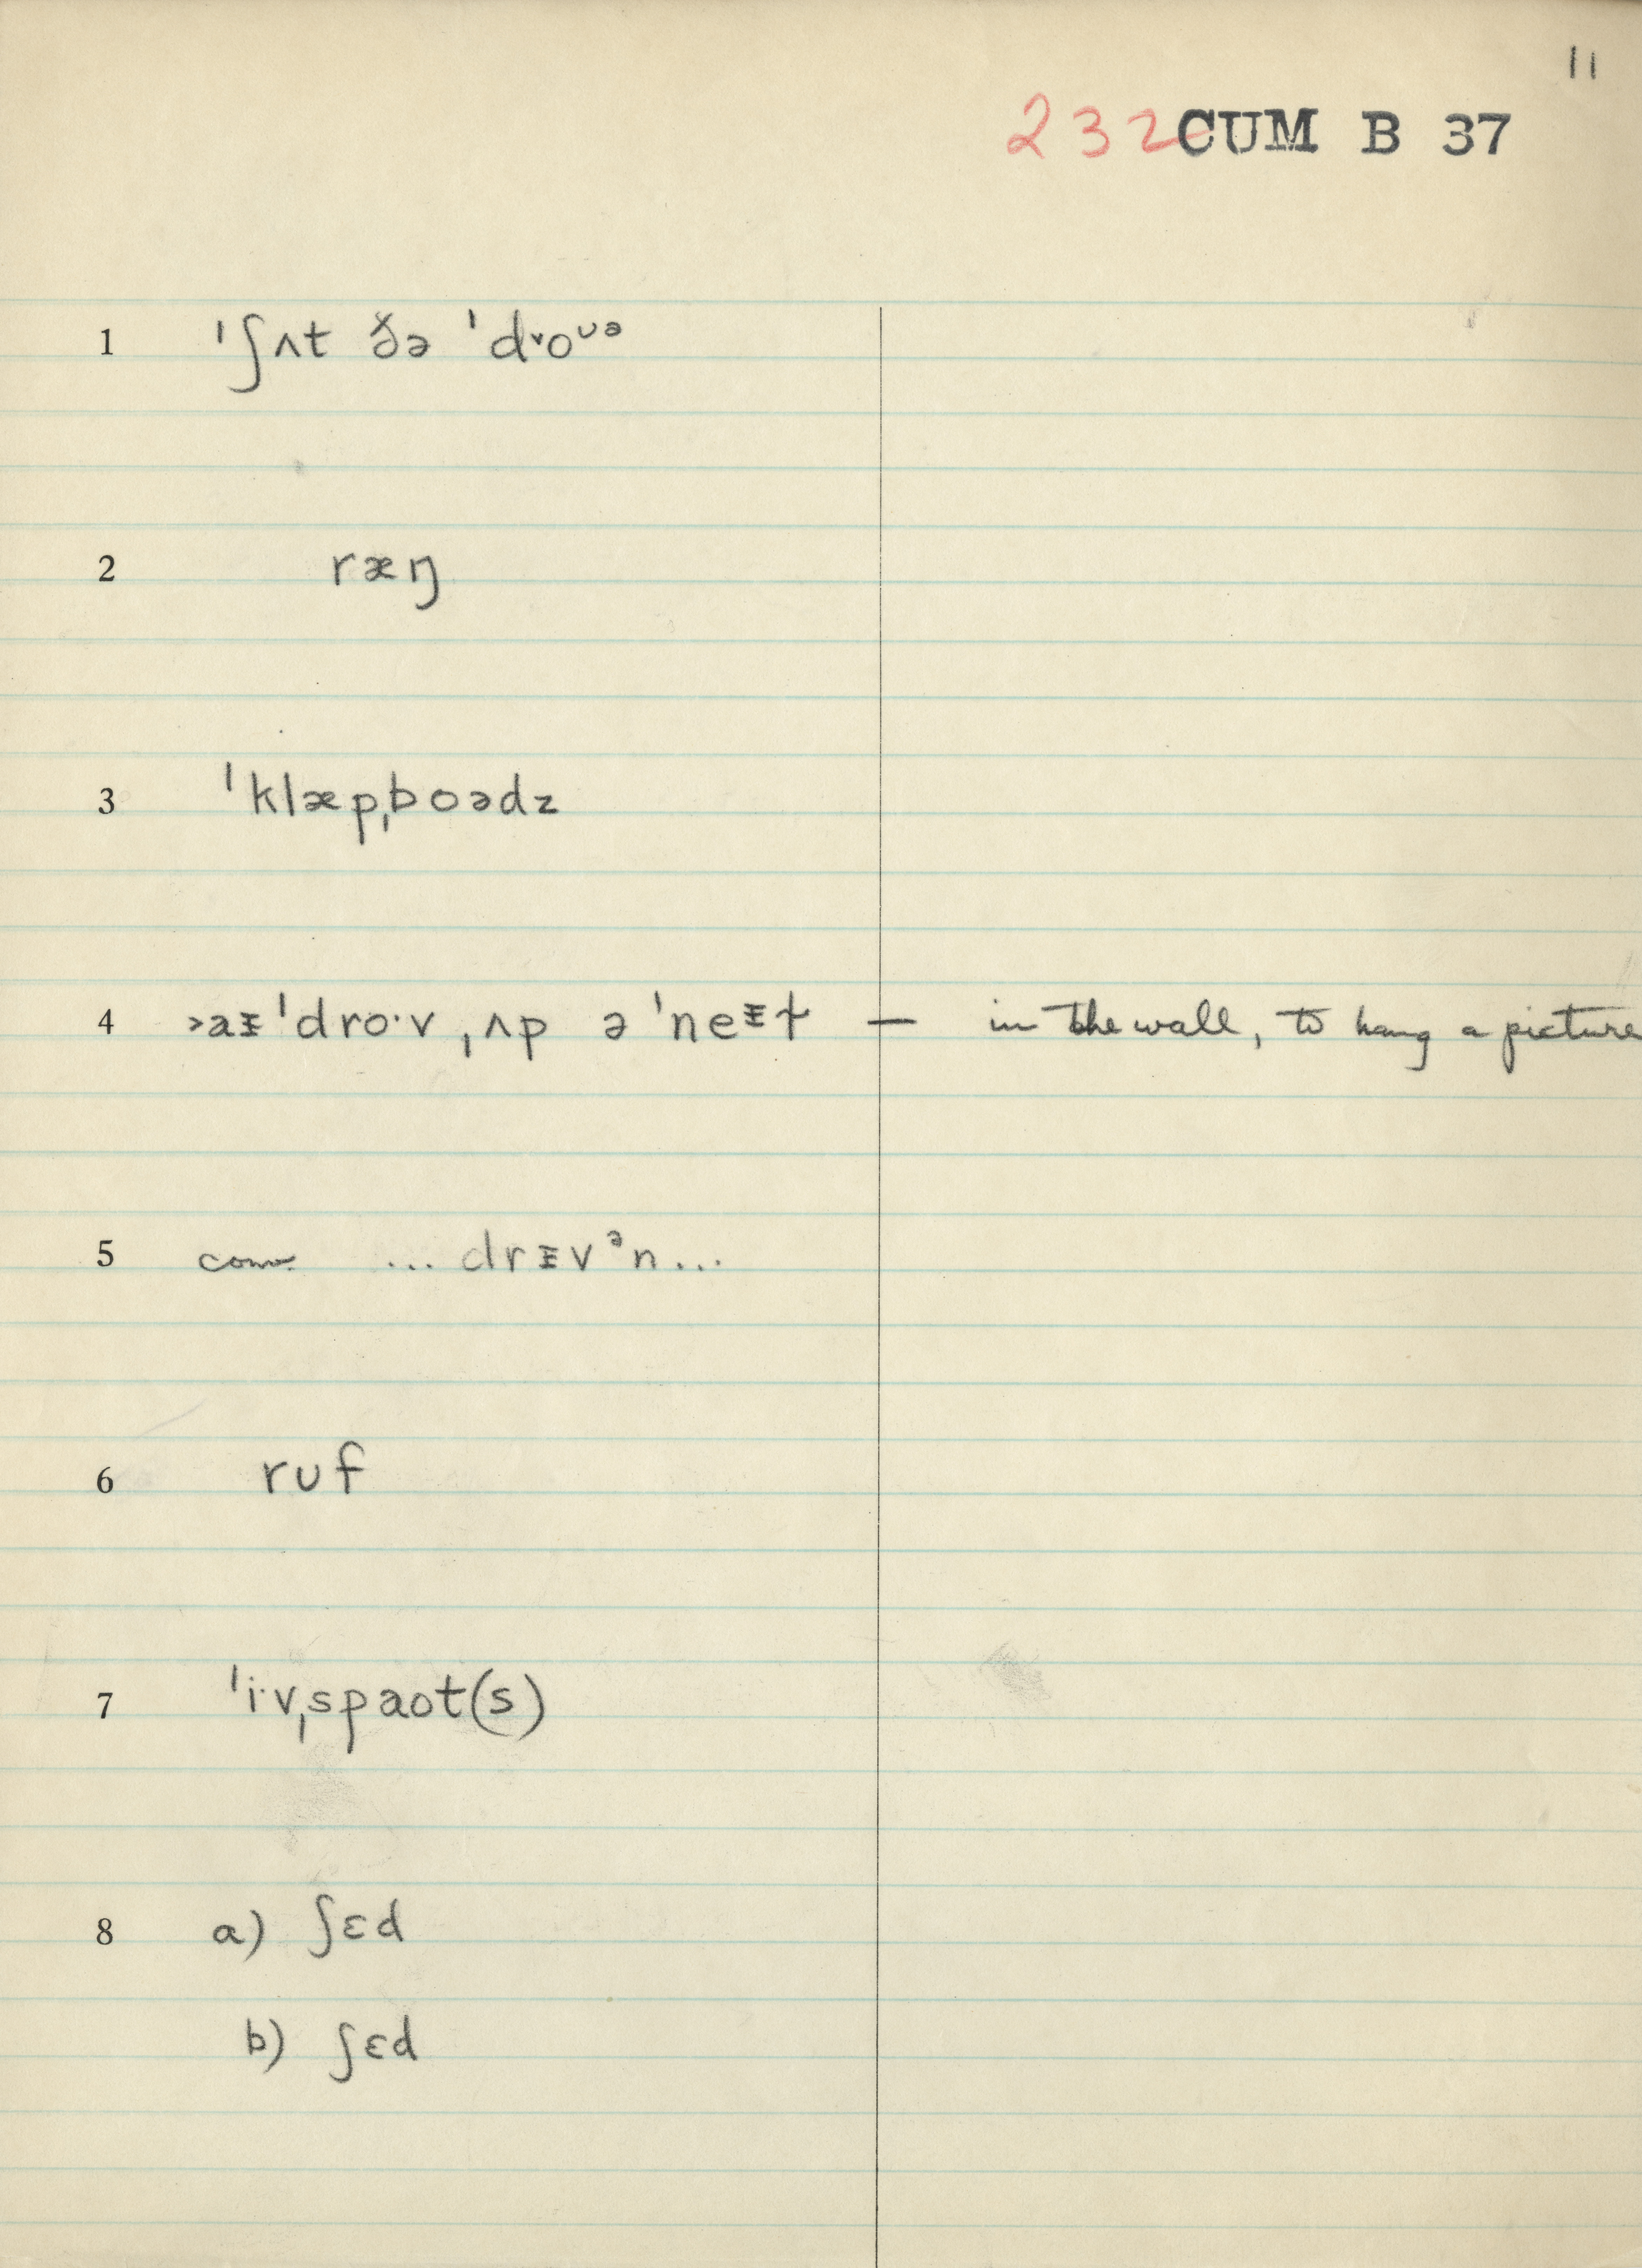 11
232 CUM B 37
1 ˈʃʌt ðə ˈdᵛoᴜᵊ
2 ræŋ
3 ˈklæpˌboədz
4 ˃aᵻˈdroˑv ˌʌp ə ˈneᵻɫ — in the wall, to hang a picture
5 conv. ... drᵻvᵊn ...
6 rᴜf
7 ˈiˑvˌspaot(s)
8 a) ʃɛd
b) ʃɛd